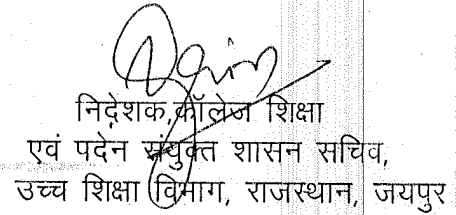 निदेशक,कॉलेज शिक्षा
एवं पदेन संयुक्त शासन सचिव,
उच्च शिक्षा विभाग, राजस्थान, जयपुर